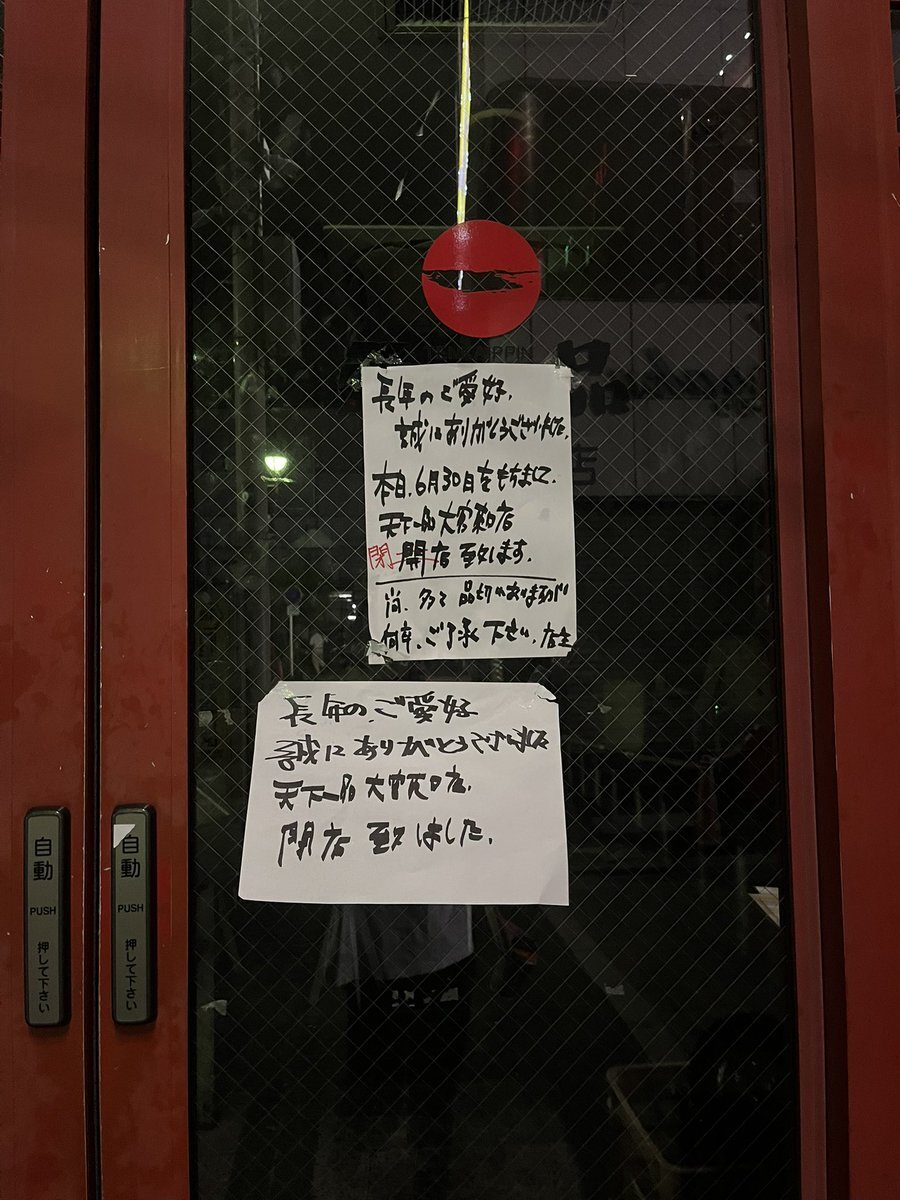 IPPIN
品
店
長年のご愛好、
誠にありがとうございました。
本日、6月30日をもちまして、
天下一品大宮東口店
閉 開店 致します。
尚、多々 品切れ
何卒、ご了承下さい。店主
長年の、ご愛好
誠にありがとうございました
天下一品 大宮東口店。
閉店 致しました。
自動
PUSH
押して下さい
自動
PUSH
押して下さい